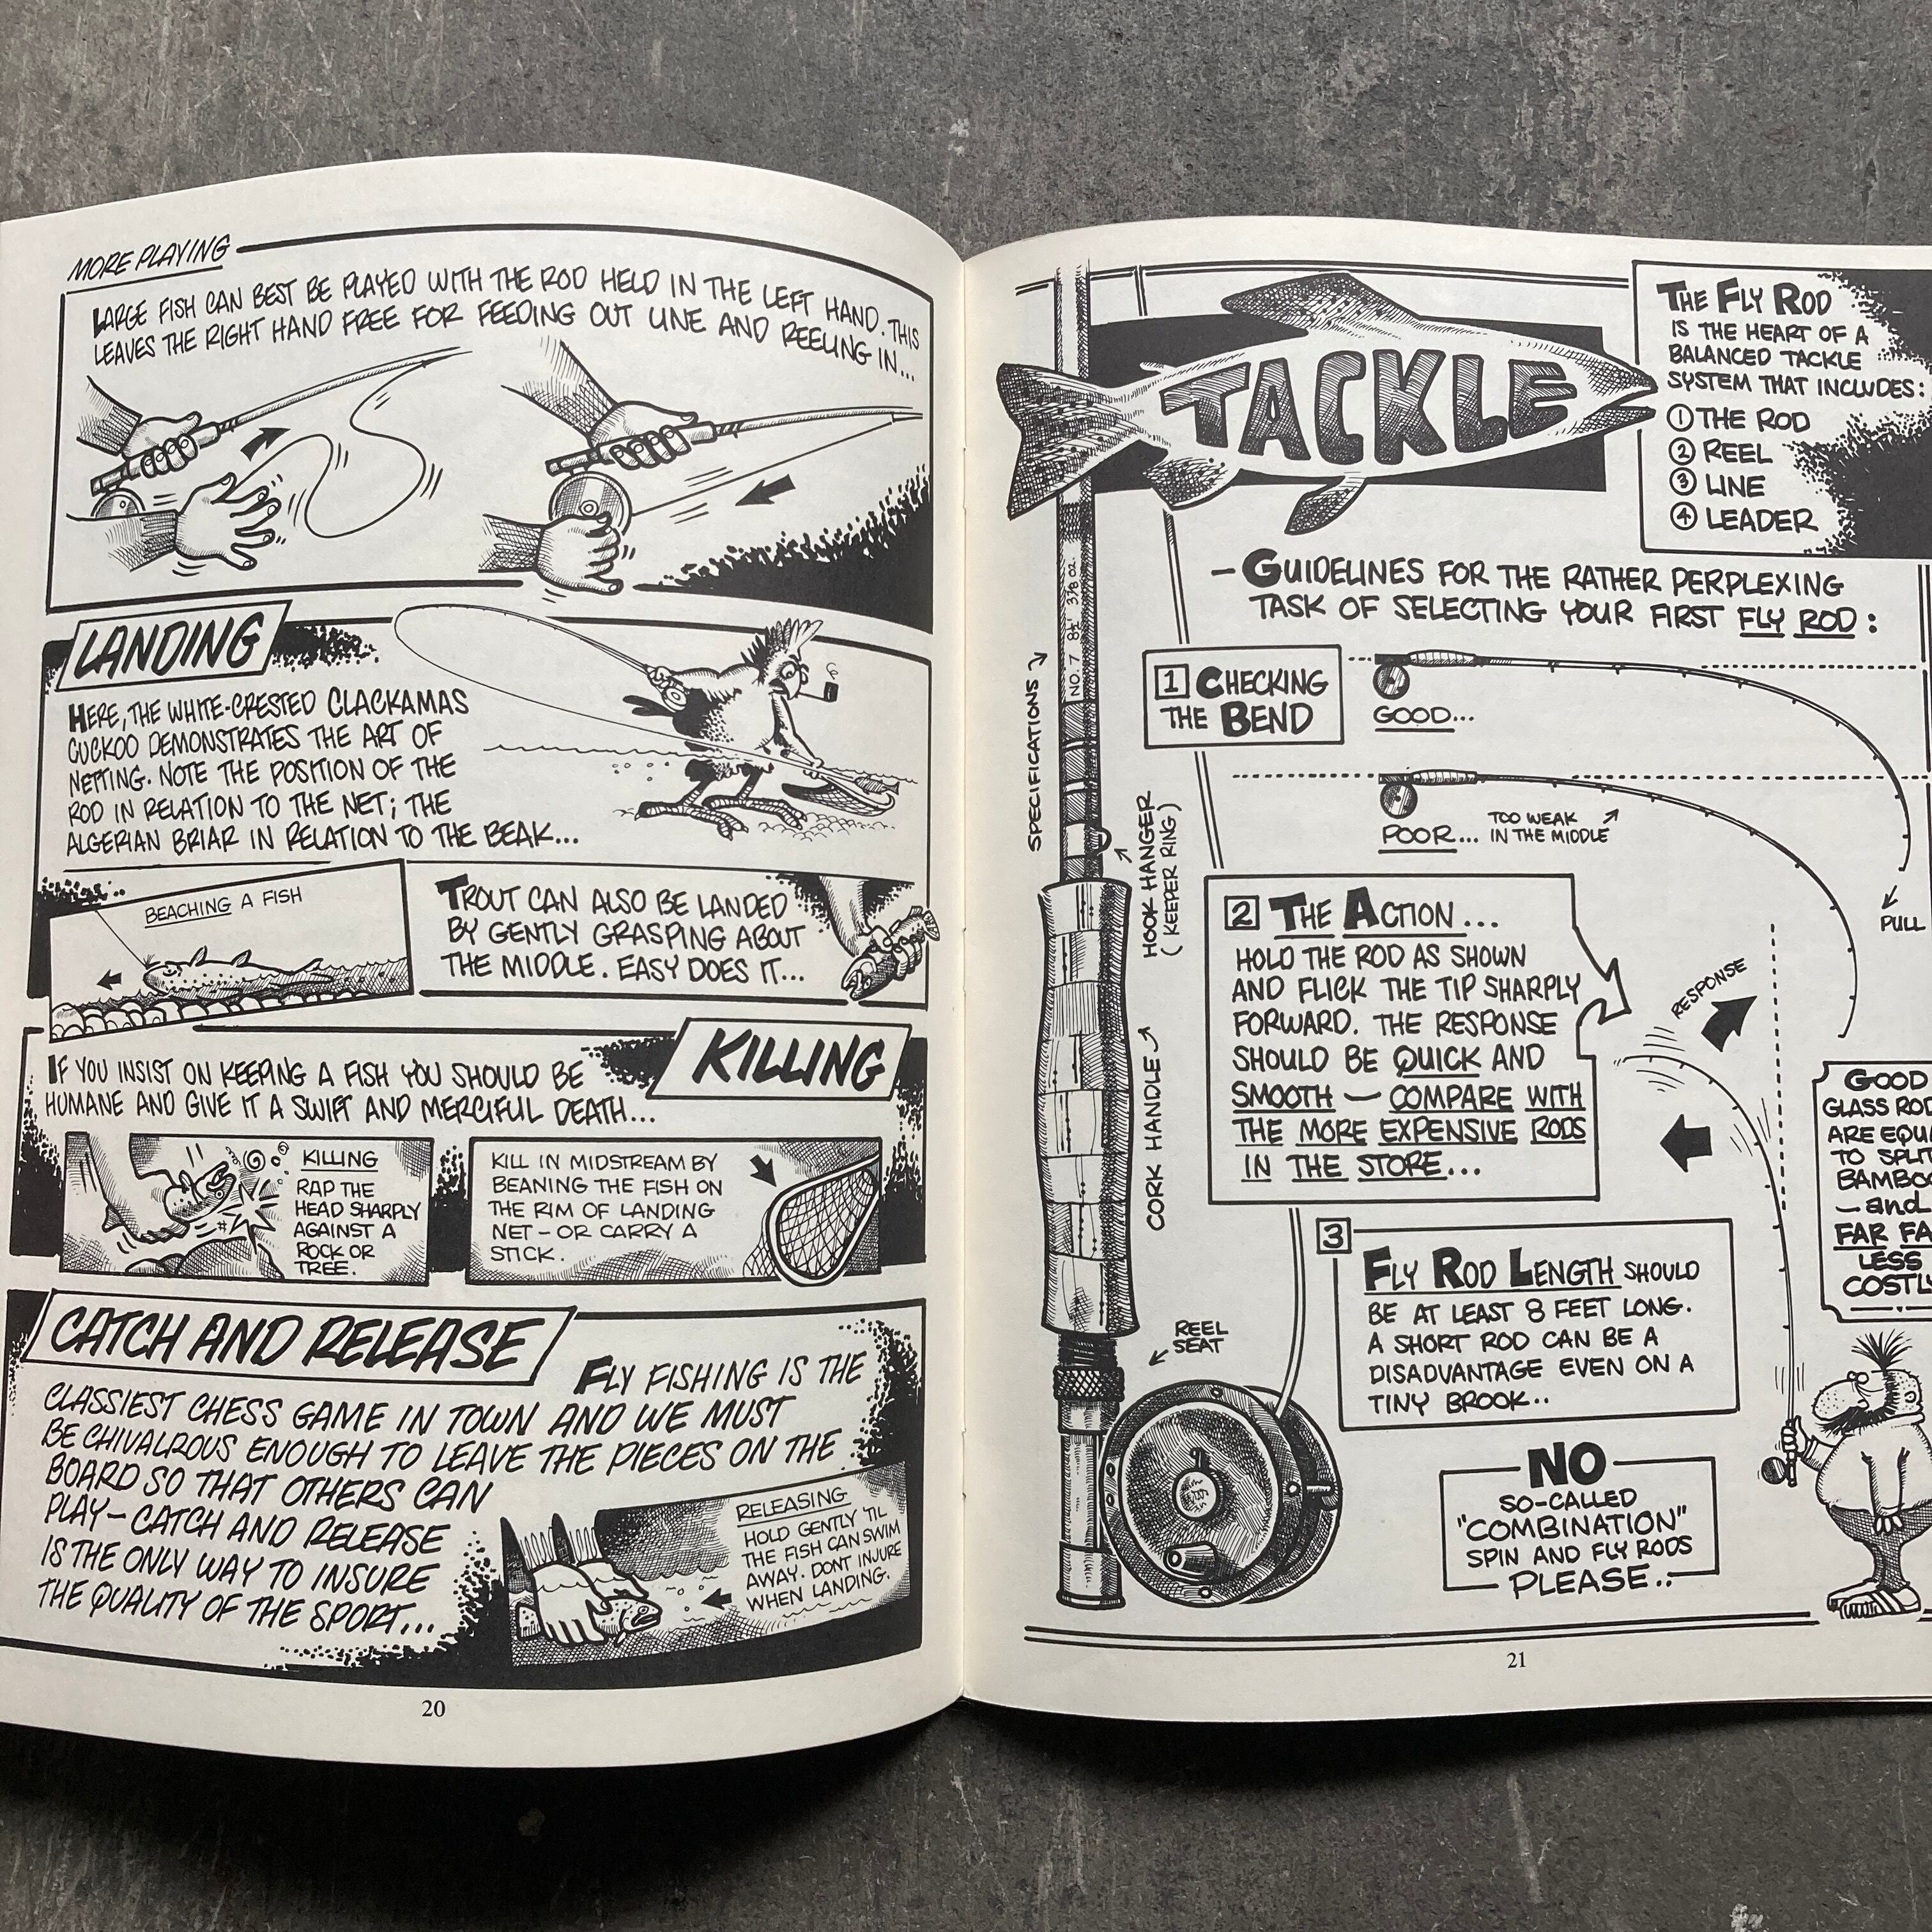 MORE PLAYING
LARGE FISH CAN BEST BE PLAYED WITH THE ROD HELD IN THE LEFT HAND. THIS
LEAVES THE RIGHT HAND FREE FOR FEEDING OUT LINE AND REELING IN...
LANDING
HERE, THE WHITE-CRESTED CLACKAMAS
CUCKOO DEMONSTRATES THE ART OF
NETTING. NOTE THE POSITION OF THE
ROD IN RELATION TO THE NET; THE
ALGERIAN BRIAR IN RELATION TO THE BEAK...
BEACHING A FISH
TROUT CAN ALSO BE LANDED
BY GENTLY GRASPING ABOUT
THE MIDDLE. EASY DOES IT...
KILLING
IF YOU INSIST ON KEEPING A FISH YOU SHOULD BE
HUMANE AND GIVE IT A SWIFT AND MERCIFUL DEATH...
KILLING
RAP THE
HEAD SHARPLY
AGAINST A
ROCK OR
TREE.
KILL IN MIDSTREAM BY
BEANING THE FISH ON
THE RIM OF LANDING
NET - OR CARRY A
STICK.
CATCH AND RELEASE
FLY FISHING IS THE
CLASSIEST CHESS GAME IN TOWN AND WE MUST
BE CHIVALROUS ENOUGH TO LEAVE THE PIECES ON THE
BOARD SO THAT OTHERS CAN
PLAY - CATCH AND RELEASE
IS THE ONLY WAY TO INSURE
THE QUALITY OF THE SPORT...
RELEASING
HOLD GENTLY 'TIL
THE FISH CAN SWIM
AWAY. DONT INJURE
WHEN LANDING.
20
TACKLE
THE FLY ROD
IS THE HEART OF A
BALANCED TACKLE
SYSTEM THAT INCLUDES:
① THE ROD
② REEL
③ LINE
④ LEADER
- GUIDELINES FOR THE RATHER PERPLEXING
TASK OF SELECTING YOUR FIRST FLY ROD:
NO. 7 8½' 3⅞ OZ.
SPECIFICATIONS
HOOK HANGER
(KEEPER RING)
CORK HANDLE
REEL
SEAT
1 CHECKING
THE BEND
GOOD...
POOR...
TOO WEAK
IN THE MIDDLE
PULL
2 THE ACTION...
HOLD THE ROD AS SHOWN
AND FLICK THE TIP SHARPLY
FORWARD. THE RESPONSE
SHOULD BE QUICK AND
SMOOTH - COMPARE WITH
THE MORE EXPENSIVE RODS
IN THE STORE...
RESPONSE
GOOD
GLASS ROD
ARE EQUA
TO SPLIT
BAMBOO
- and
FAR FA
LESS
COSTLY
3
FLY ROD LENGTH SHOULD
BE AT LEAST 8 FEET LONG.
A SHORT ROD CAN BE A
DISADVANTAGE EVEN ON A
TINY BROOK..
NO
SO-CALLED
"COMBINATION"
SPIN AND FLY RODS
PLEASE..
21